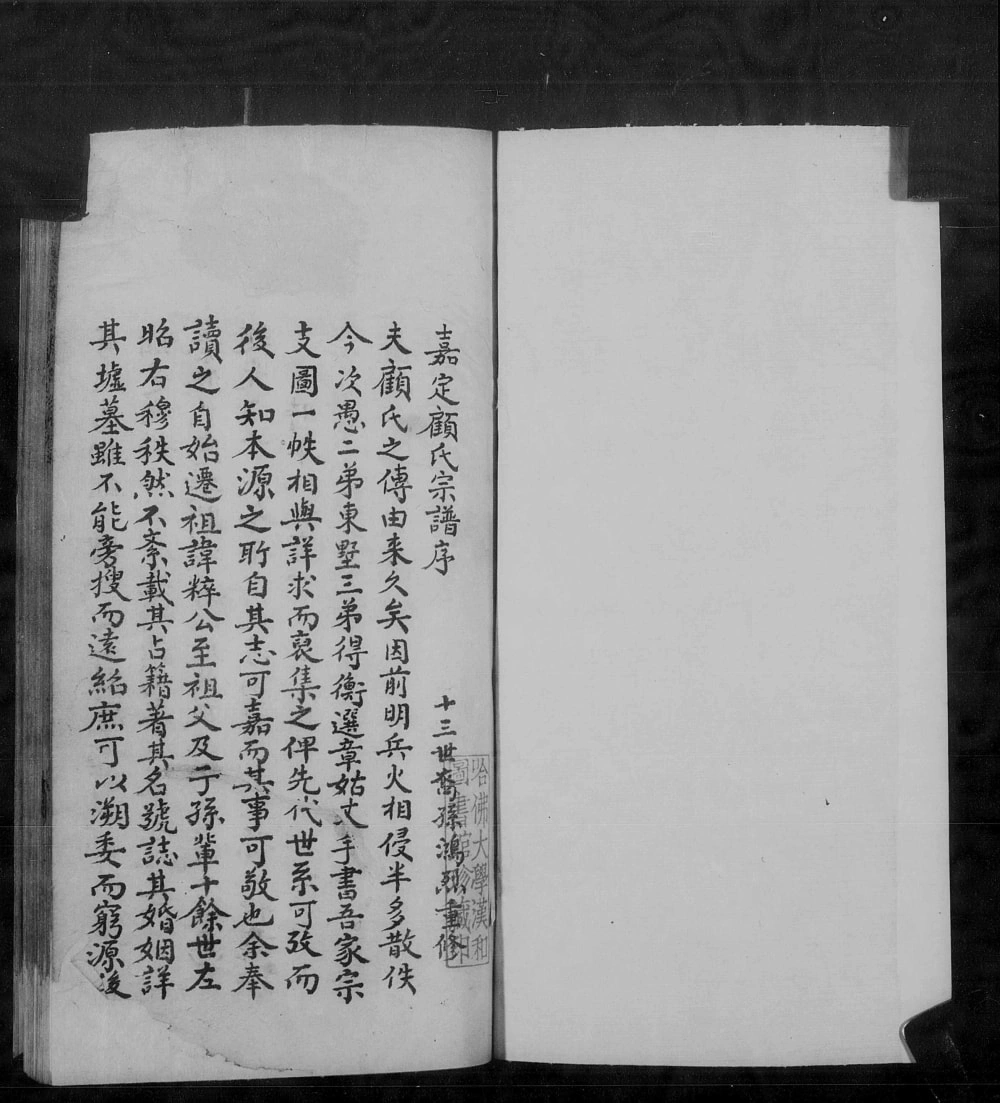 嘉定顧氏宗譜序
十三世裔孫鴻烈重修
哈佛大學漢和
圖書館珍藏印
夫顧氏之傳由来久矣因前明兵火相侵半多散佚
今次愚二弟東墅三弟得衡選章姑丈手書吾家宗
支圖一帙相與詳求而裒集之俾先代世系可攷而
後人知本源之所自其志可嘉而其事可敬也余奉
讀之自始遷祖諱粹公至祖父及子孫輩十餘世左
昭右穆秩然不紊載其占籍著其名號誌其婚姻詳
其墟墓雖不能旁搜而遠紹庶可以溯委而窮源後